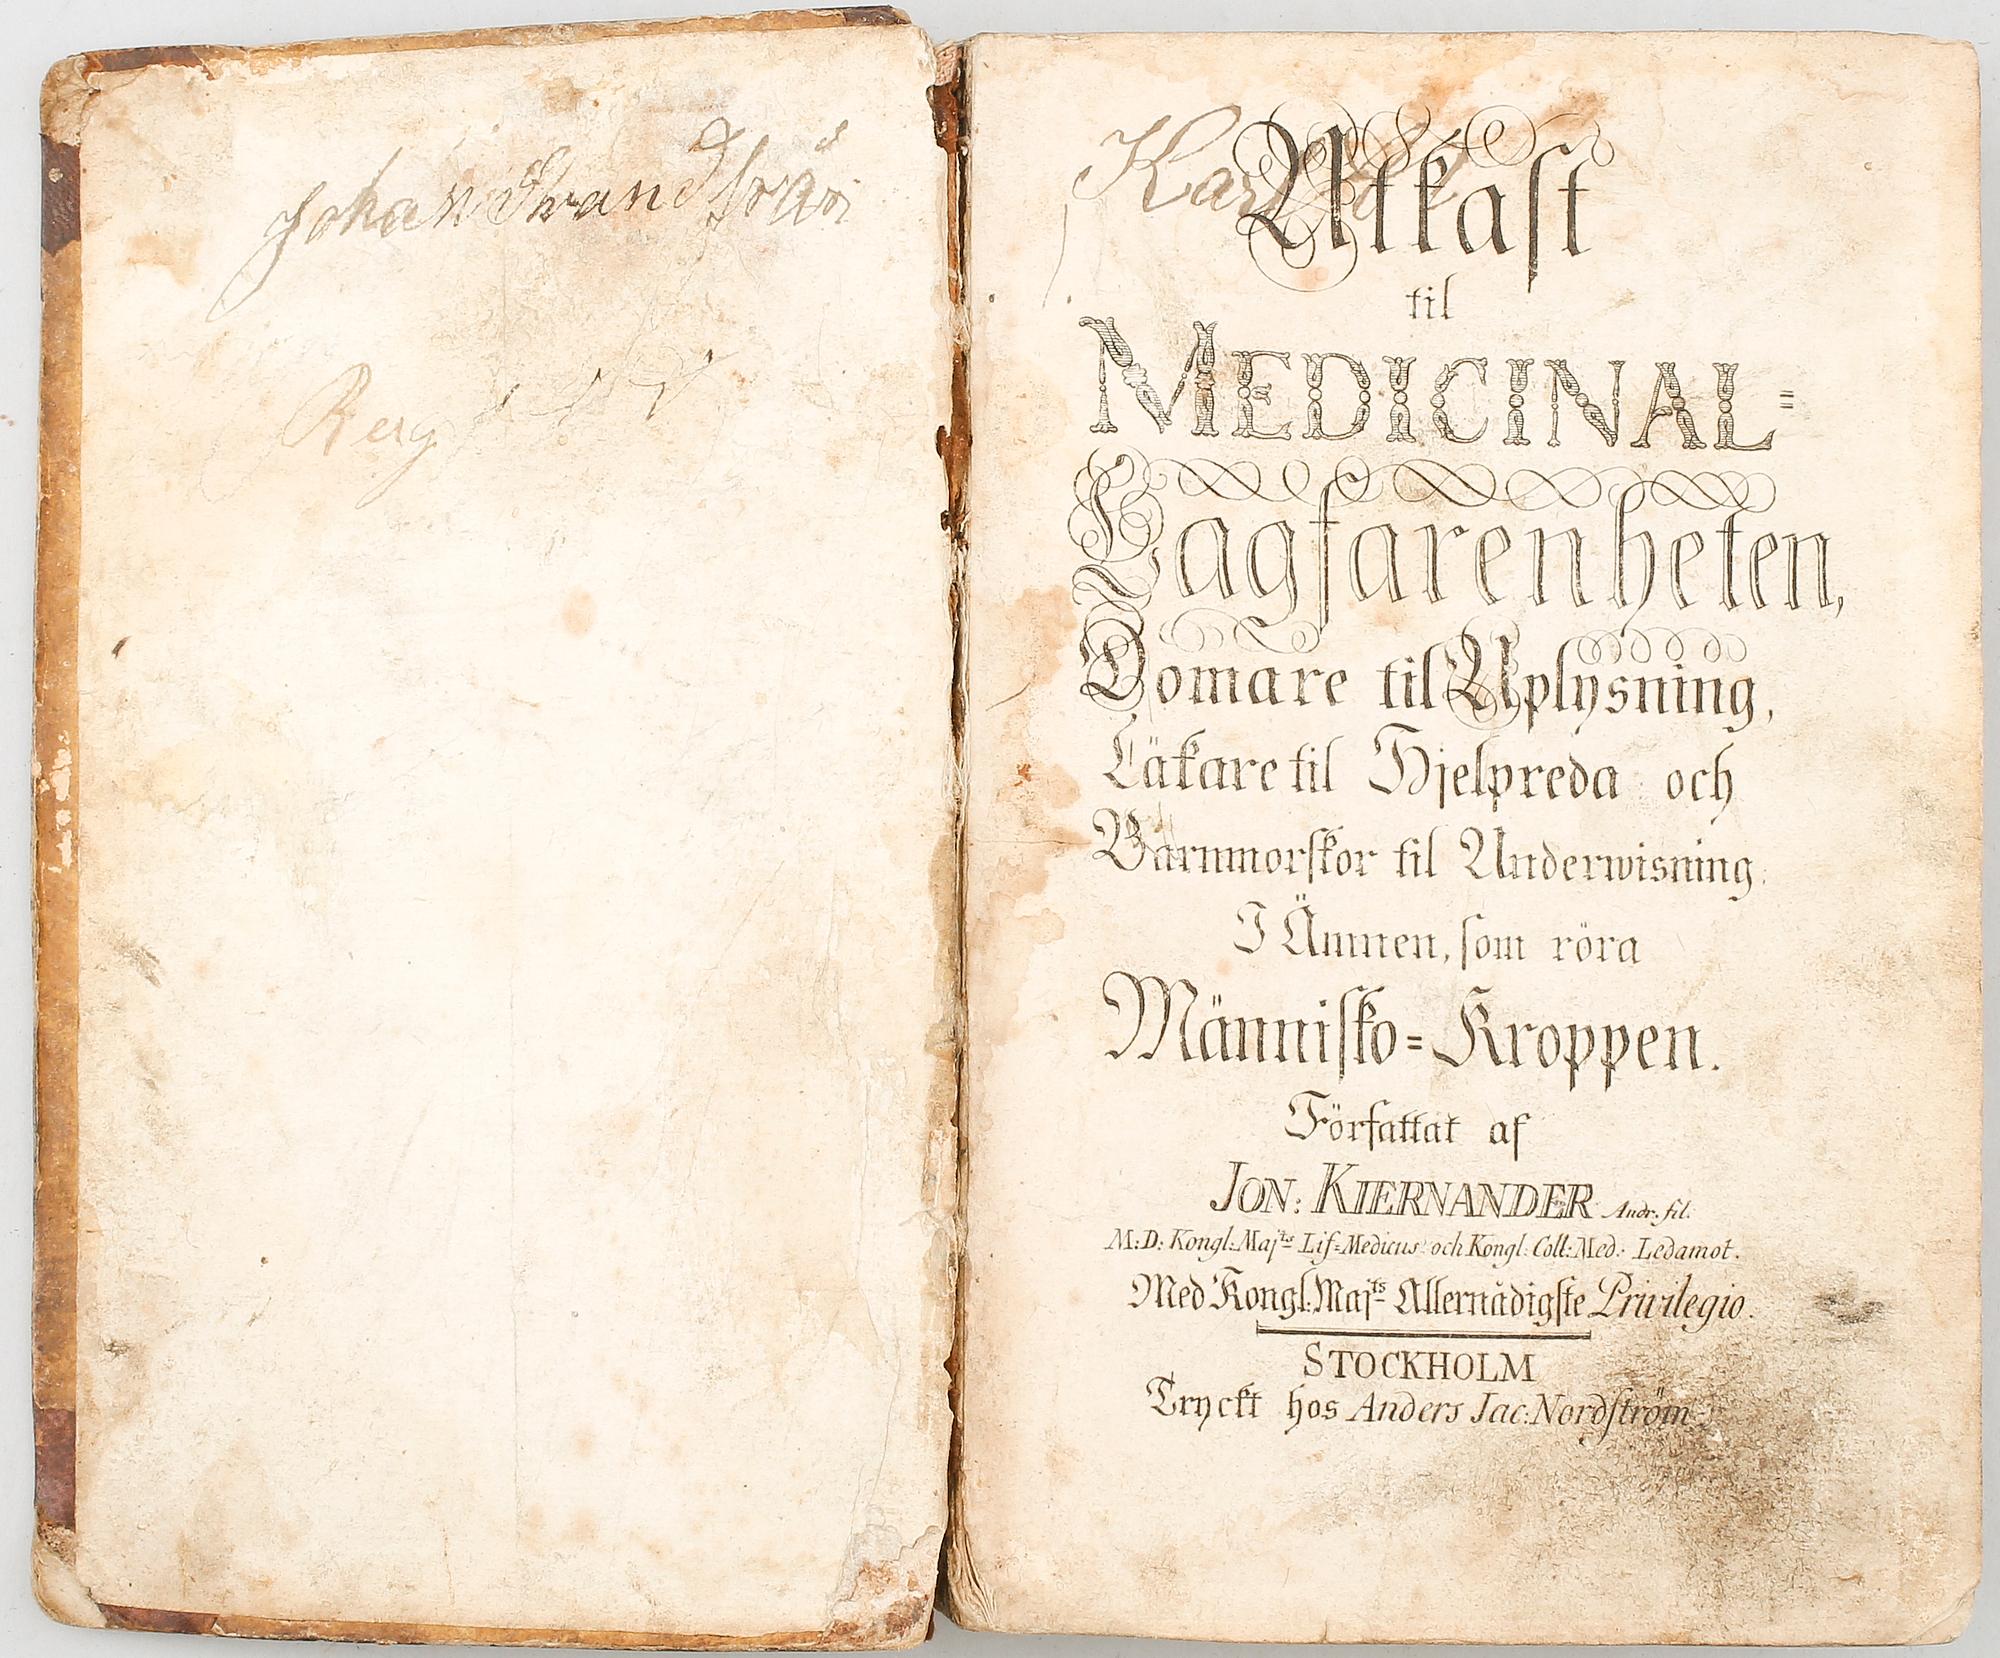 Johan
Berg
Utkast
til
MEDICINAL=
Lagfarenheten,
Domare til Uplysning,
Läkare til Hjelpreda och
Barnmorskor til Underwisning.
I Ämnen, som röra
Människo=Kroppen.
Författat af
JON: KIERNANDER Andr: fil.
M:D: Kongl: Maj:ts Lif=Medicus och Kongl: Coll: Med: Ledamot.
Med Kongl: Maj:ts Allernådigste Privilegio.
STOCKHOLM
Tryckt hos Anders Jac: Nordström